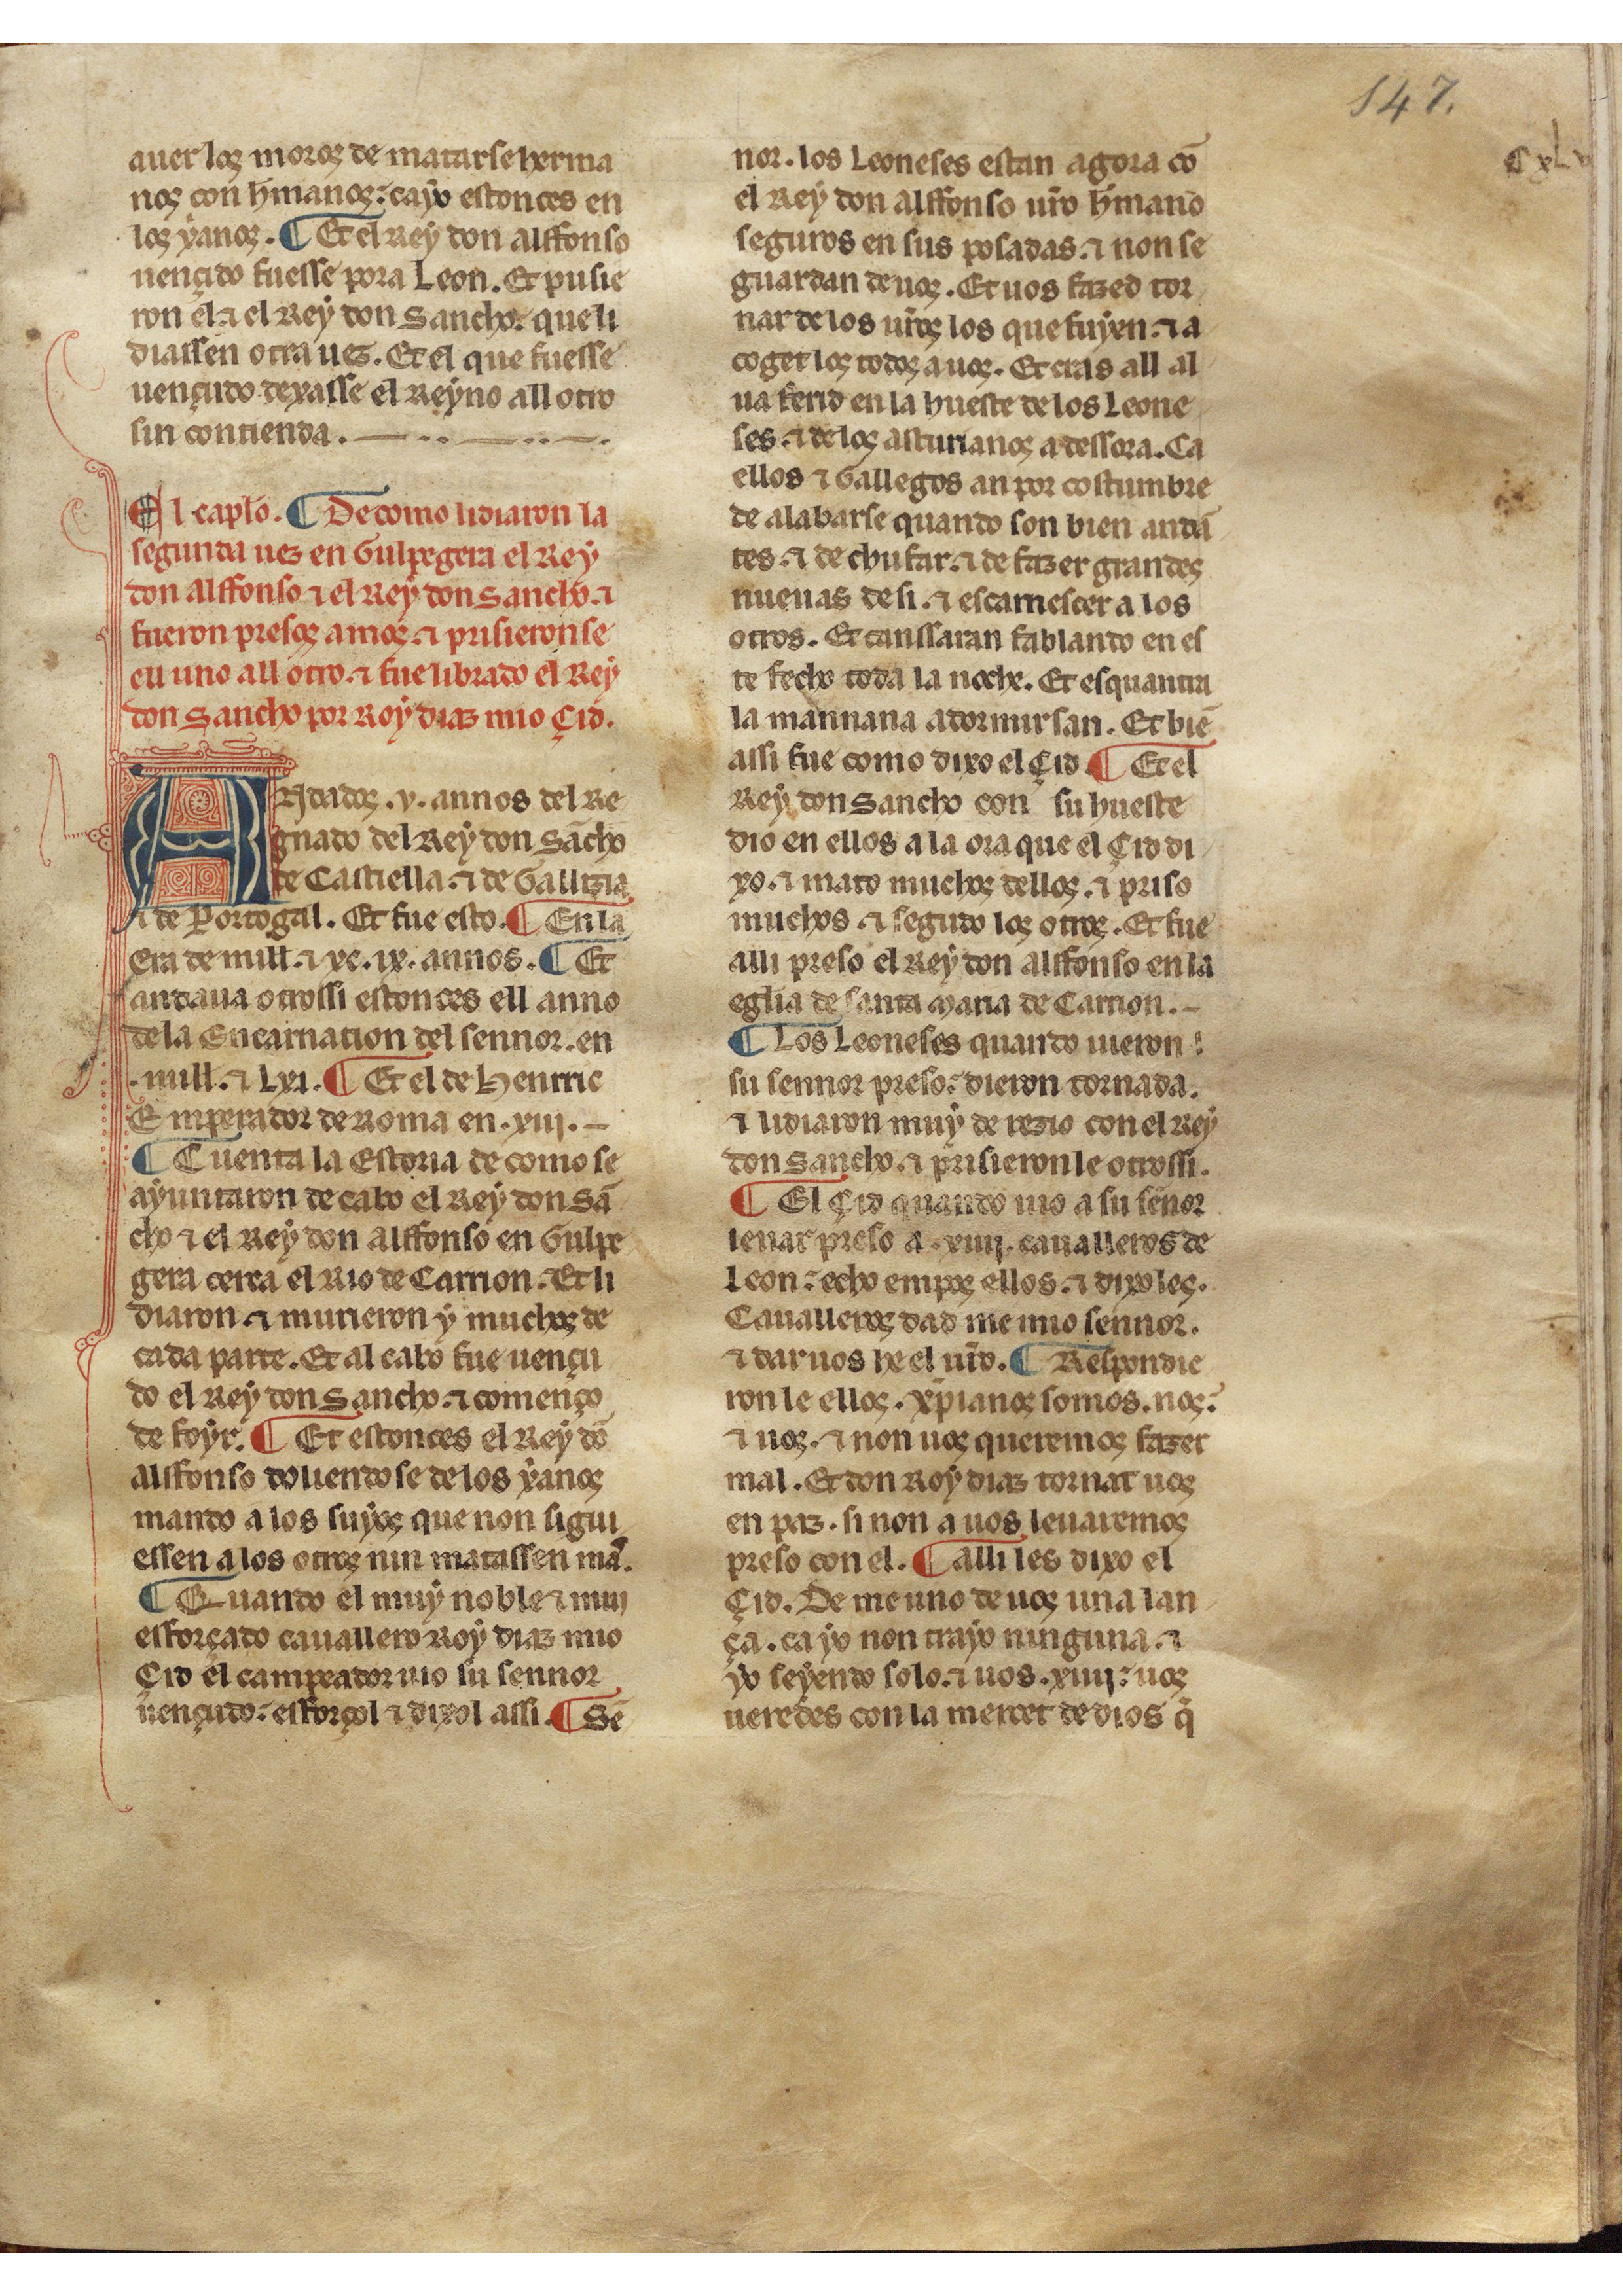 147.
C xL
auer los moros de matarse herma
nos con hmanos: cayo estonces en
los yanos. ¶ Et el Rey don alffonso
uençido fuesse pora Leon. Et pusie
ron el ⁊ el Rey don Sancho. que li
diassen otra uez. Et el que fuesse
uençudo dexasse el Reyno all otro
sin contienda.
El caplo. ¶ De como lidiaron la
segunda uez en Gulpegera el Rey
don Alffonso ⁊ el Rey don Sancho. ⁊
fueron presos amos. ⁊ prisieron se
ell uno all otro. ⁊ fue librado el Rey
don Sancho por Roy diaz mio Çid.
ANdados .v. annos del Re
gnado del Rey don Sācho
de Castiella. ⁊ de Gallizia
⁊ de Portogal. Et fue esto. ¶ En la
Era de mill. ⁊ xc. ix. annos. ¶ Et
andaua otrossi estonces ell anno
de la Encarnation del sennor. en
.mill. ⁊ Lxi. ¶ Et el de Henrric
Emperador de Roma en .xiij.
¶ Cuenta la Estoria de como se
ayuntaron de cabo el Rey don Sā
cho ⁊ el Rey don Alffonso en Gulpe
gera cerca el Rio de Carrion. Et li
diaron. ⁊ murieron y muchos de
cada parte. Et al cabo fue uençu
do el Rey don Sancho. ⁊ començo
de foyr. ¶ Et estonces el Rey dō
Alffonso doliendo se de los yanos
mando a los suyos que non sigui
essen a los otros nin matassen mas.
¶ Quando el muy noble ⁊ muy
esforçado cauallero Roy diaz mio
Çid el campeador uio su sennor
uençudo: esforçol ⁊ dixol assi. ¶ Sē
nor. los Leoneses estan agora cō
el Rey don alffonso uro hmano
seguros en sus posadas. ⁊ non se
guardan de uos. Et uos fazed tor
nar de los uros los que fuyen. ⁊ a
coger los todos a uos. Et cras all al
ua ferid en la hueste de los Leone
ses. ⁊ de los asturianos a dessora. Ca
ellos ⁊ Gallegos an por costumbre
de alabarse quando son bien andā
tes. ⁊ de chufar. ⁊ de fazer grandes
nueuas de si. ⁊ escarnescer a los
otros. Et canssaran fablando en es
te fecho toda la noche. Et esquantra
la mannana adormirsan. Et biē
assi fue como dixo el Çid. ¶ Et el
Rey don Sancho con su hueste
dio en ellos a la ora que el Çid di
xo. ⁊ mato muchos dellos. ⁊ priso
muchos. ⁊ segudo los otros. Et fue
alli preso el Rey don alffonso en la
eglia de santa Maria de Carrion.
¶ Los Leoneses quando uieron
su sennor preso: dieron tornada.
⁊ lidiaron muy de rezio con el Rey
don Sancho. ⁊ prisieron le otrossi.
¶ El Çid quando uio a su sēnor
leuar preso a .xiiij. caualleros de
Leon: echo empos ellos. ⁊ dixoles.
Caualleros dad me mio sennor.
⁊ daruos he el uro. ¶ Respondie
ron le ellos. xpianos somos. nos:
⁊ uos. ⁊ non uos queremos fazer
mal. Et don Roy diaz tornat uos
en paz. si non a uos leuaremos
preso con el. ¶ alli les dixo el
Çid. De me uno de uos una lan
ça. ca yo non trayo ninguna. ⁊
yo seyendo solo. ⁊ uos .xiiij: uos
ueredes con la mercet de dios q̄